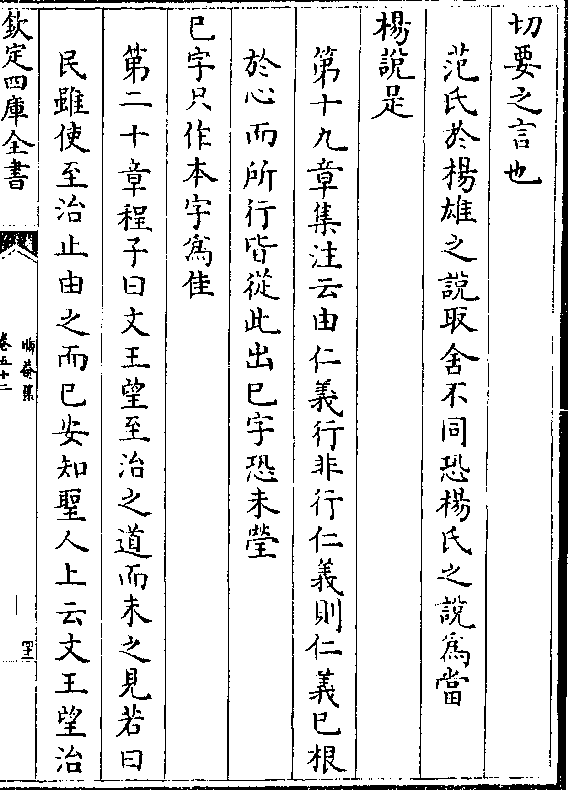 切要之言也
范氏於楊雄之說取舍不同恐楊氏之說爲當
楊說足
第十九章集注云由仁義行非行仁義則仁義巳根
於心而所行皆從此出巳字恐未瑩
巳字只作本字爲佳
第二十章程子曰文王望至治之道而未之見若曰
民雖使至治止由之而巳安知聖人上云文王望治
欽定四庫全書
晦菴集
卷五十二